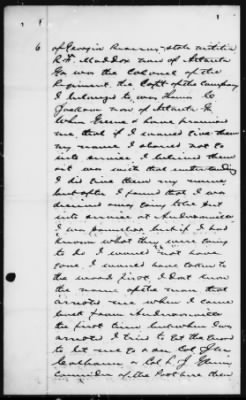 6
of Georgia Reserves, state militia
R. F. Maddox now of Atlanta
Ga was the Colonel of the
Regiment. the Capt of the Company
I belonged to was
Jackson now of Atlanta Ga
When Greene & have promised
me, that if I would give them
my name I should not go
into service I believed them
it was with that understanding
I did give them my name
but after I found that I was
deceived and was going to be put
into service at Andersonville
I was powerless but if I had
known what they were going
to do I would not have
gone. I would have taken to
the woods first. I dont know
the name of the man that
arrested me when I came
back from Andersonville
the first time but when I was
arrested I tried to get the Guard
to let me go & see Col Jno
Calhoun & Col L J Glenn
commander of the Post here then